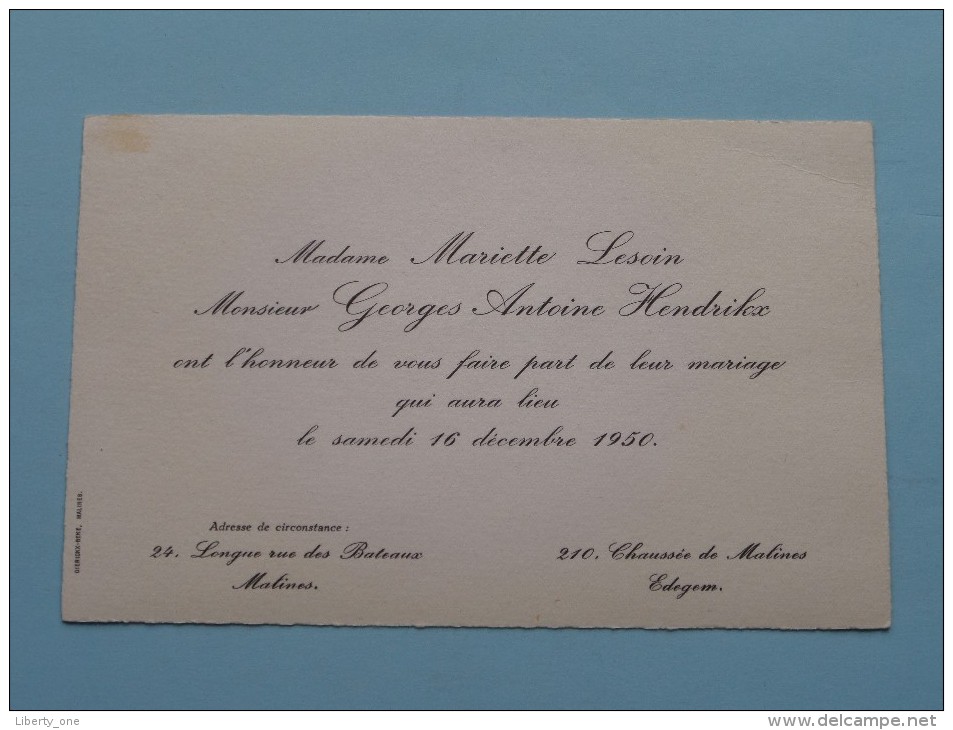 Madame Mariette Lesoin
Monsieur Georges Antoine Hendrikx
ont l'honneur de vous faire part de leur mariage
qui aura lieu
le samedi 16 décembre 1950.
Adresse de circonstance :
24. Longue rue des Bateaux
Malines.
210. Chaussée de Malines
Edegem.
DIERICKX-BEKE, MALINES.
Liberty_one
www.delcampe.net